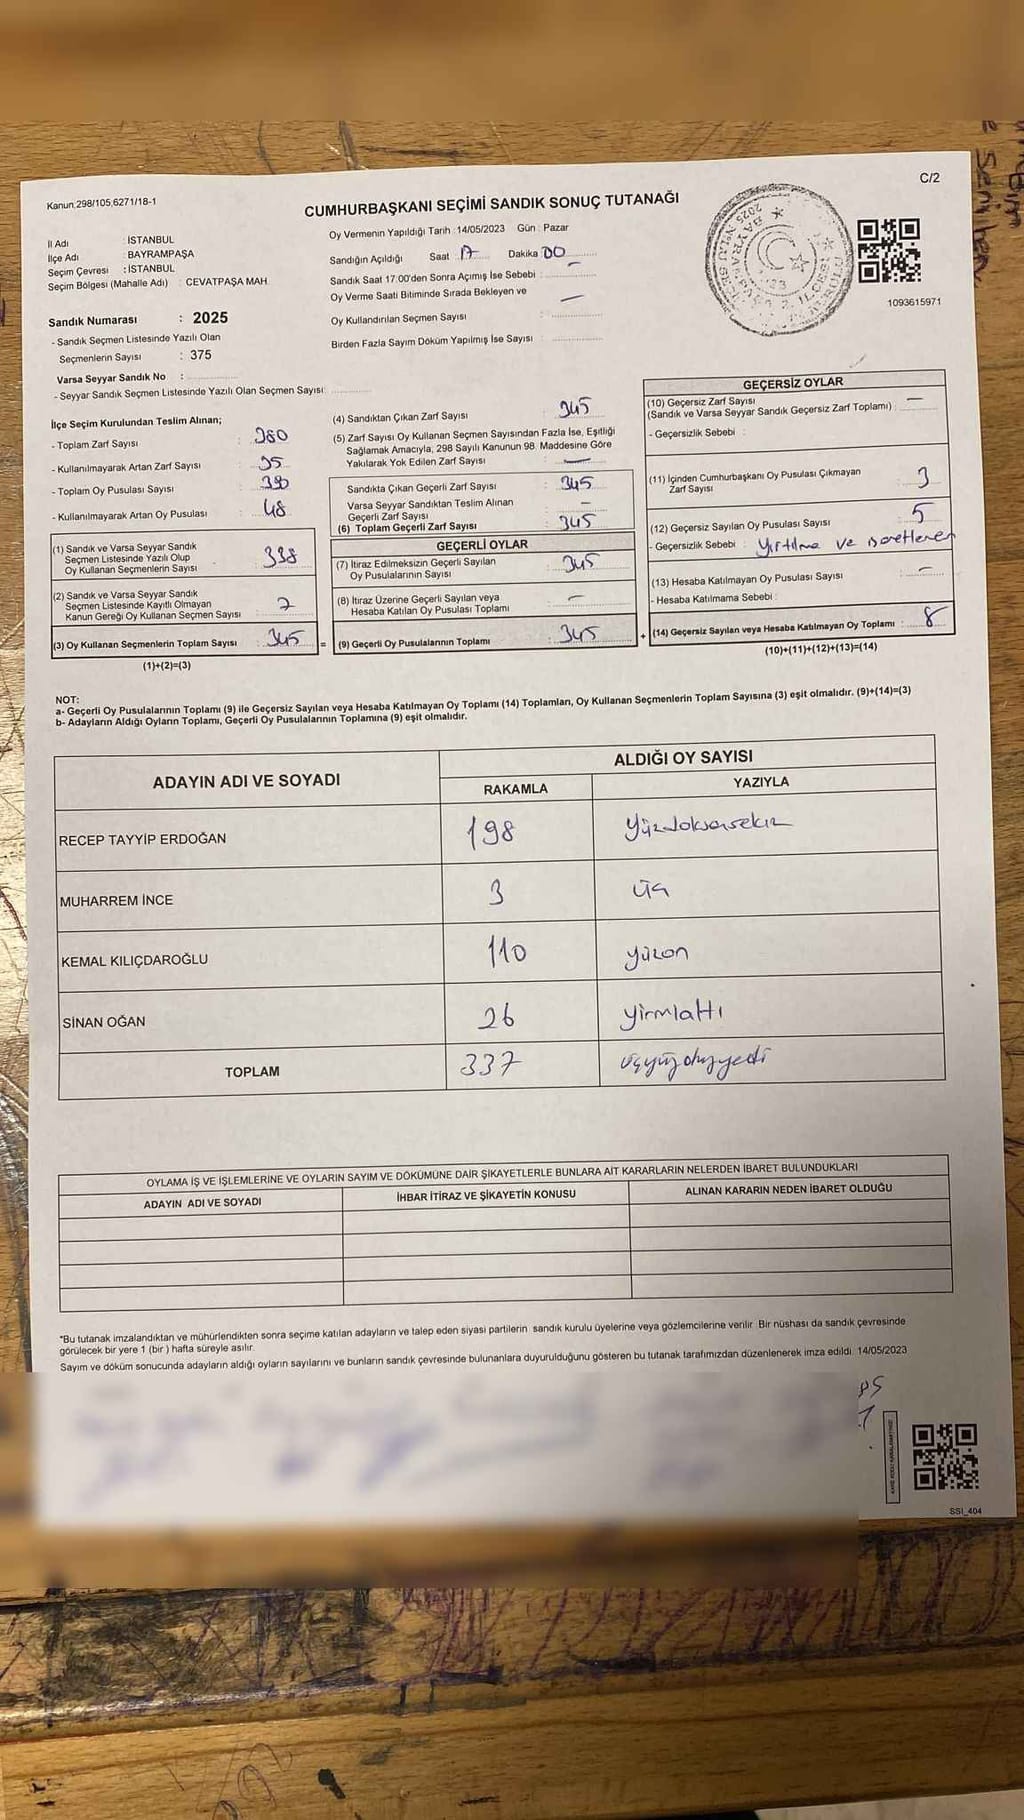 C/2
Kanun 298/105,6271/18-1
CUMHURBAŞKANI SEÇİMİ SANDIK SONUÇ TUTANAĞI
İl Adı : İSTANBUL
İlçe Adı : BAYRAMPAŞA
Seçim Çevresi : İSTANBUL
Seçim Bölgesi (Mahalle Adı) : CEVATPAŞA MAH.
Sandık Numarası : 2025
- Sandık Seçmen Listesinde Yazılı Olan
Seçmenlerin Sayısı : 375
Varsa Seyyar Sandık No :
- Seyyar Sandık Seçmen Listesinde Yazılı Olan Seçmen Sayısı:
Oy Vermenin Yapıldığı Tarih :14/05/2023 Gün : Pazar
Sandığın Açıldığı Saat 17 Dakika 00
Sandık Saat 17:00'den Sonra Açımış İse Sebebi : -
Oy Verme Saati Bitiminde Sırada Bekleyen ve
Oy Kullandırılan Seçmen Sayısı : -
Birden Fazla Sayım Döküm Yapılmış İse Sayısı :
1093615971
İlçe Seçim Kurulundan Teslim Alınan;
- Toplam Zarf Sayısı : 380
- Kullanılmayarak Artan Zarf Sayısı : 35
- Toplam Oy Pusulası Sayısı :
- Kullanılmayarak Artan Oy Pusulası : 48
(1) Sandık ve Varsa Seyyar Sandık
Seçmen Listesinde Yazılı Olup
Oy Kullanan Seçmenlerin Sayısı : 338
(2) Sandık ve Varsa Seyyar Sandık
Seçmen Listesinde Kayıtlı Olmayan
Kanun Gereği Oy Kullanan Seçmen Sayısı : 7
(3) Oy Kullanan Seçmenlerin Toplam Sayısı : 345 =
(1)+(2)=(3)
(4) Sandıktan Çıkan Zarf Sayısı : 345
(5) Zarf Sayısı Oy Kullanan Seçmen Sayısından Fazla İse, Eşitliği
Sağlamak Amacıyla, 298 Sayılı Kanunun 98. Maddesine Göre
Yakılarak Yok Edilen Zarf Sayısı : -
Sandıkta Çıkan Geçerli Zarf Sayısı : 345
Varsa Seyyar Sandıktan Teslim Alınan
Geçerli Zarf Sayısı : -
(6) Toplam Geçerli Zarf Sayısı : 345
GEÇERLİ OYLAR
(7) İtiraz Edilmeksizin Geçerli Sayılan
Oy Pusulalarının Sayısı : 345
(8) İtiraz Üzerine Geçerli Sayılan veya
Hesaba Katılan Oy Pusulası Toplamı : -
(9) Geçerli Oy Pusulalarının Toplamı : 345 +
GEÇERSİZ OYLAR
(10) Geçersiz Zarf Sayısı
(Sandık ve Varsa Seyyar Sandık Geçersiz Zarf Toplamı) : -
- Geçersizlik Sebebi :
(11) İçinden Cumhurbaşkanı Oy Pusulası Çıkmayan
Zarf Sayısı : 3
(12) Geçersiz Sayılan Oy Pusulası Sayısı : 5
- Geçersizlik Sebebi : Yırtılma ve
(13) Hesaba Katılmayan Oy Pusulası Sayısı : -
- Hesaba Katılmama Sebebi :
(14) Geçersiz Sayılan veya Hesaba Katılmayan Oy Toplamı : 8
(10)+(11)+(12)+(13)=(14)
NOT:
a- Geçerli Oy Pusulalarının Toplamı (9) ile Geçersiz Sayılan veya Hesaba Katılmayan Oy Toplamı (14) Toplamları, Oy Kullanan Seçmenlerin Toplam Sayısına (3) eşit olmalıdır. (9)+(14)=(3)
b- Adayların Aldığı Oyların Toplamı, Geçerli Oy Pusulalarının Toplamına (9) eşit olmalıdır.
ADAYIN ADI VE SOYADI ALDIĞI OY SAYISI
RAKAMLA YAZIYLA
RECEP TAYYİP ERDOĞAN 198 yüzdoksansekiz
MUHARREM İNCE 3 üç
KEMAL KILIÇDAROĞLU 110 yüzon
SİNAN OĞAN 26 yirmialtı
TOPLAM 337 üçyüzotuzyedi
OYLAMA İŞ VE İŞLEMLERİNE VE OYLARIN SAYIM VE DÖKÜMÜNE DAİR ŞİKAYETLERLE BUNLARA AİT KARARLARIN NELERDEN İBARET BULUNDUKLARI
ADAYIN ADI VE SOYADI İHBAR İTİRAZ VE ŞİKAYETİN KONUSU ALINAN KARARIN NEDEN İBARET OLDUĞU
*Bu tutanak imzalandıktan ve mühürlendikten sonra seçime katılan adayların ve talep eden siyasi partilerin sandık kurulu üyelerine veya gözlemcilerine verilir. Bir nüshası da sandık çevresinde
görülecek bir yere 1 (bir ) hafta süreyle asılır.
Sayım ve döküm sonucunda adayların aldığı oyların sayılarını ve bunların sandık çevresinde bulunanlara duyurulduğunu gösteren bu tutanak tarafımızdan düzenlenerek imza edildi. 14/05/2023
SSİ_404